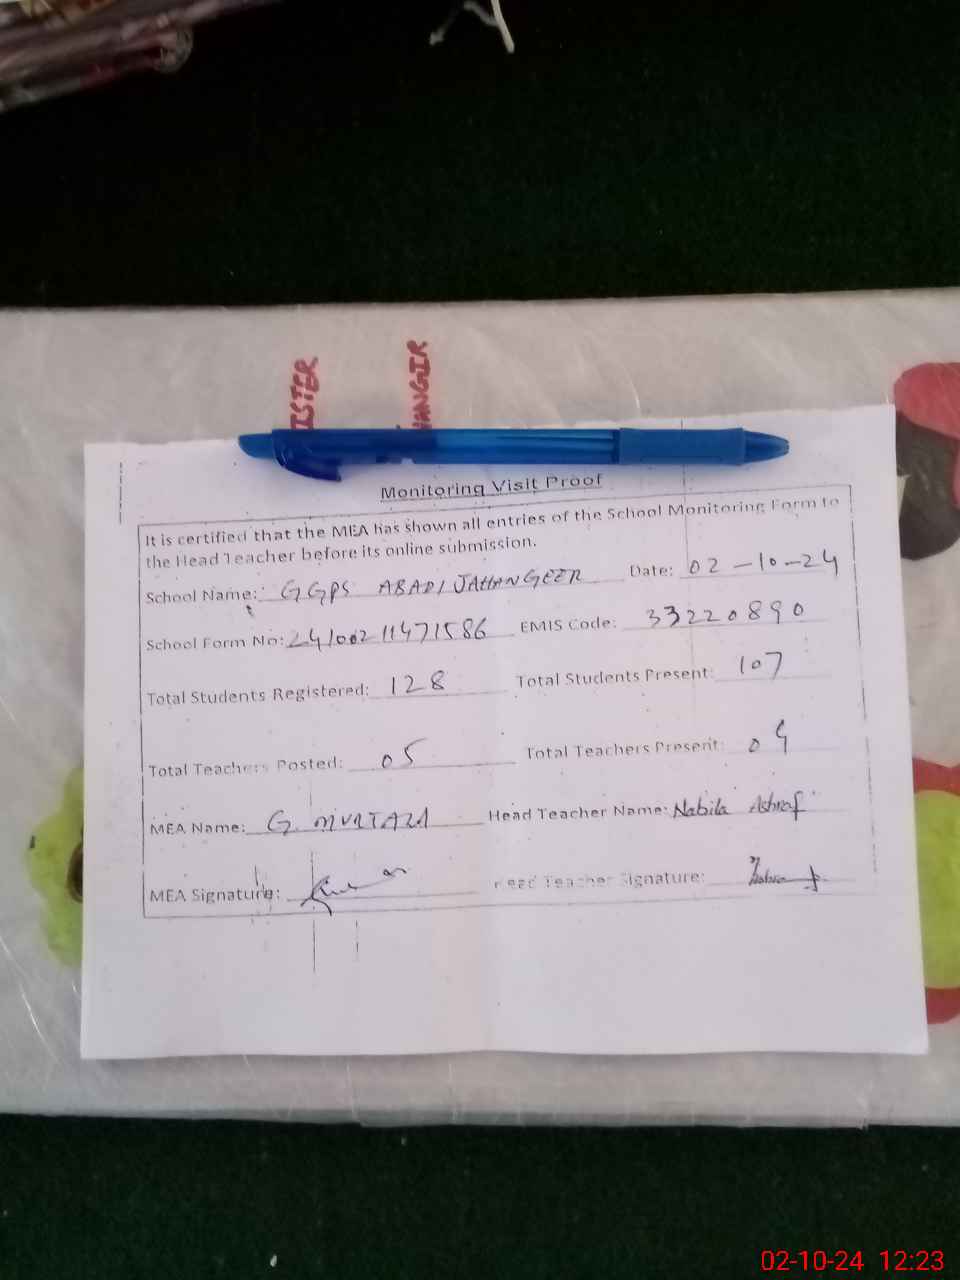 ISTER
HANGIR
Monitoring Visit Proof
It is certified that the MEA has shown all entries of the School Monitoring Form to
the Head Teacher before its online submission.
School Name: GGPS ABADI JAHANGEER Date: 02-10-24
School Form No: 24100211471586 EMIS Code: 33220890
Total Students Registered: 128 Total Students Present: 107
Total Teachers Posted: 05 Total Teachers Present: 04
MEA Name: G. MURTAZA Head Teacher Name: Nabila Ashraf
MEA Signature: Head Teacher Signature:
02-10-24 12:23